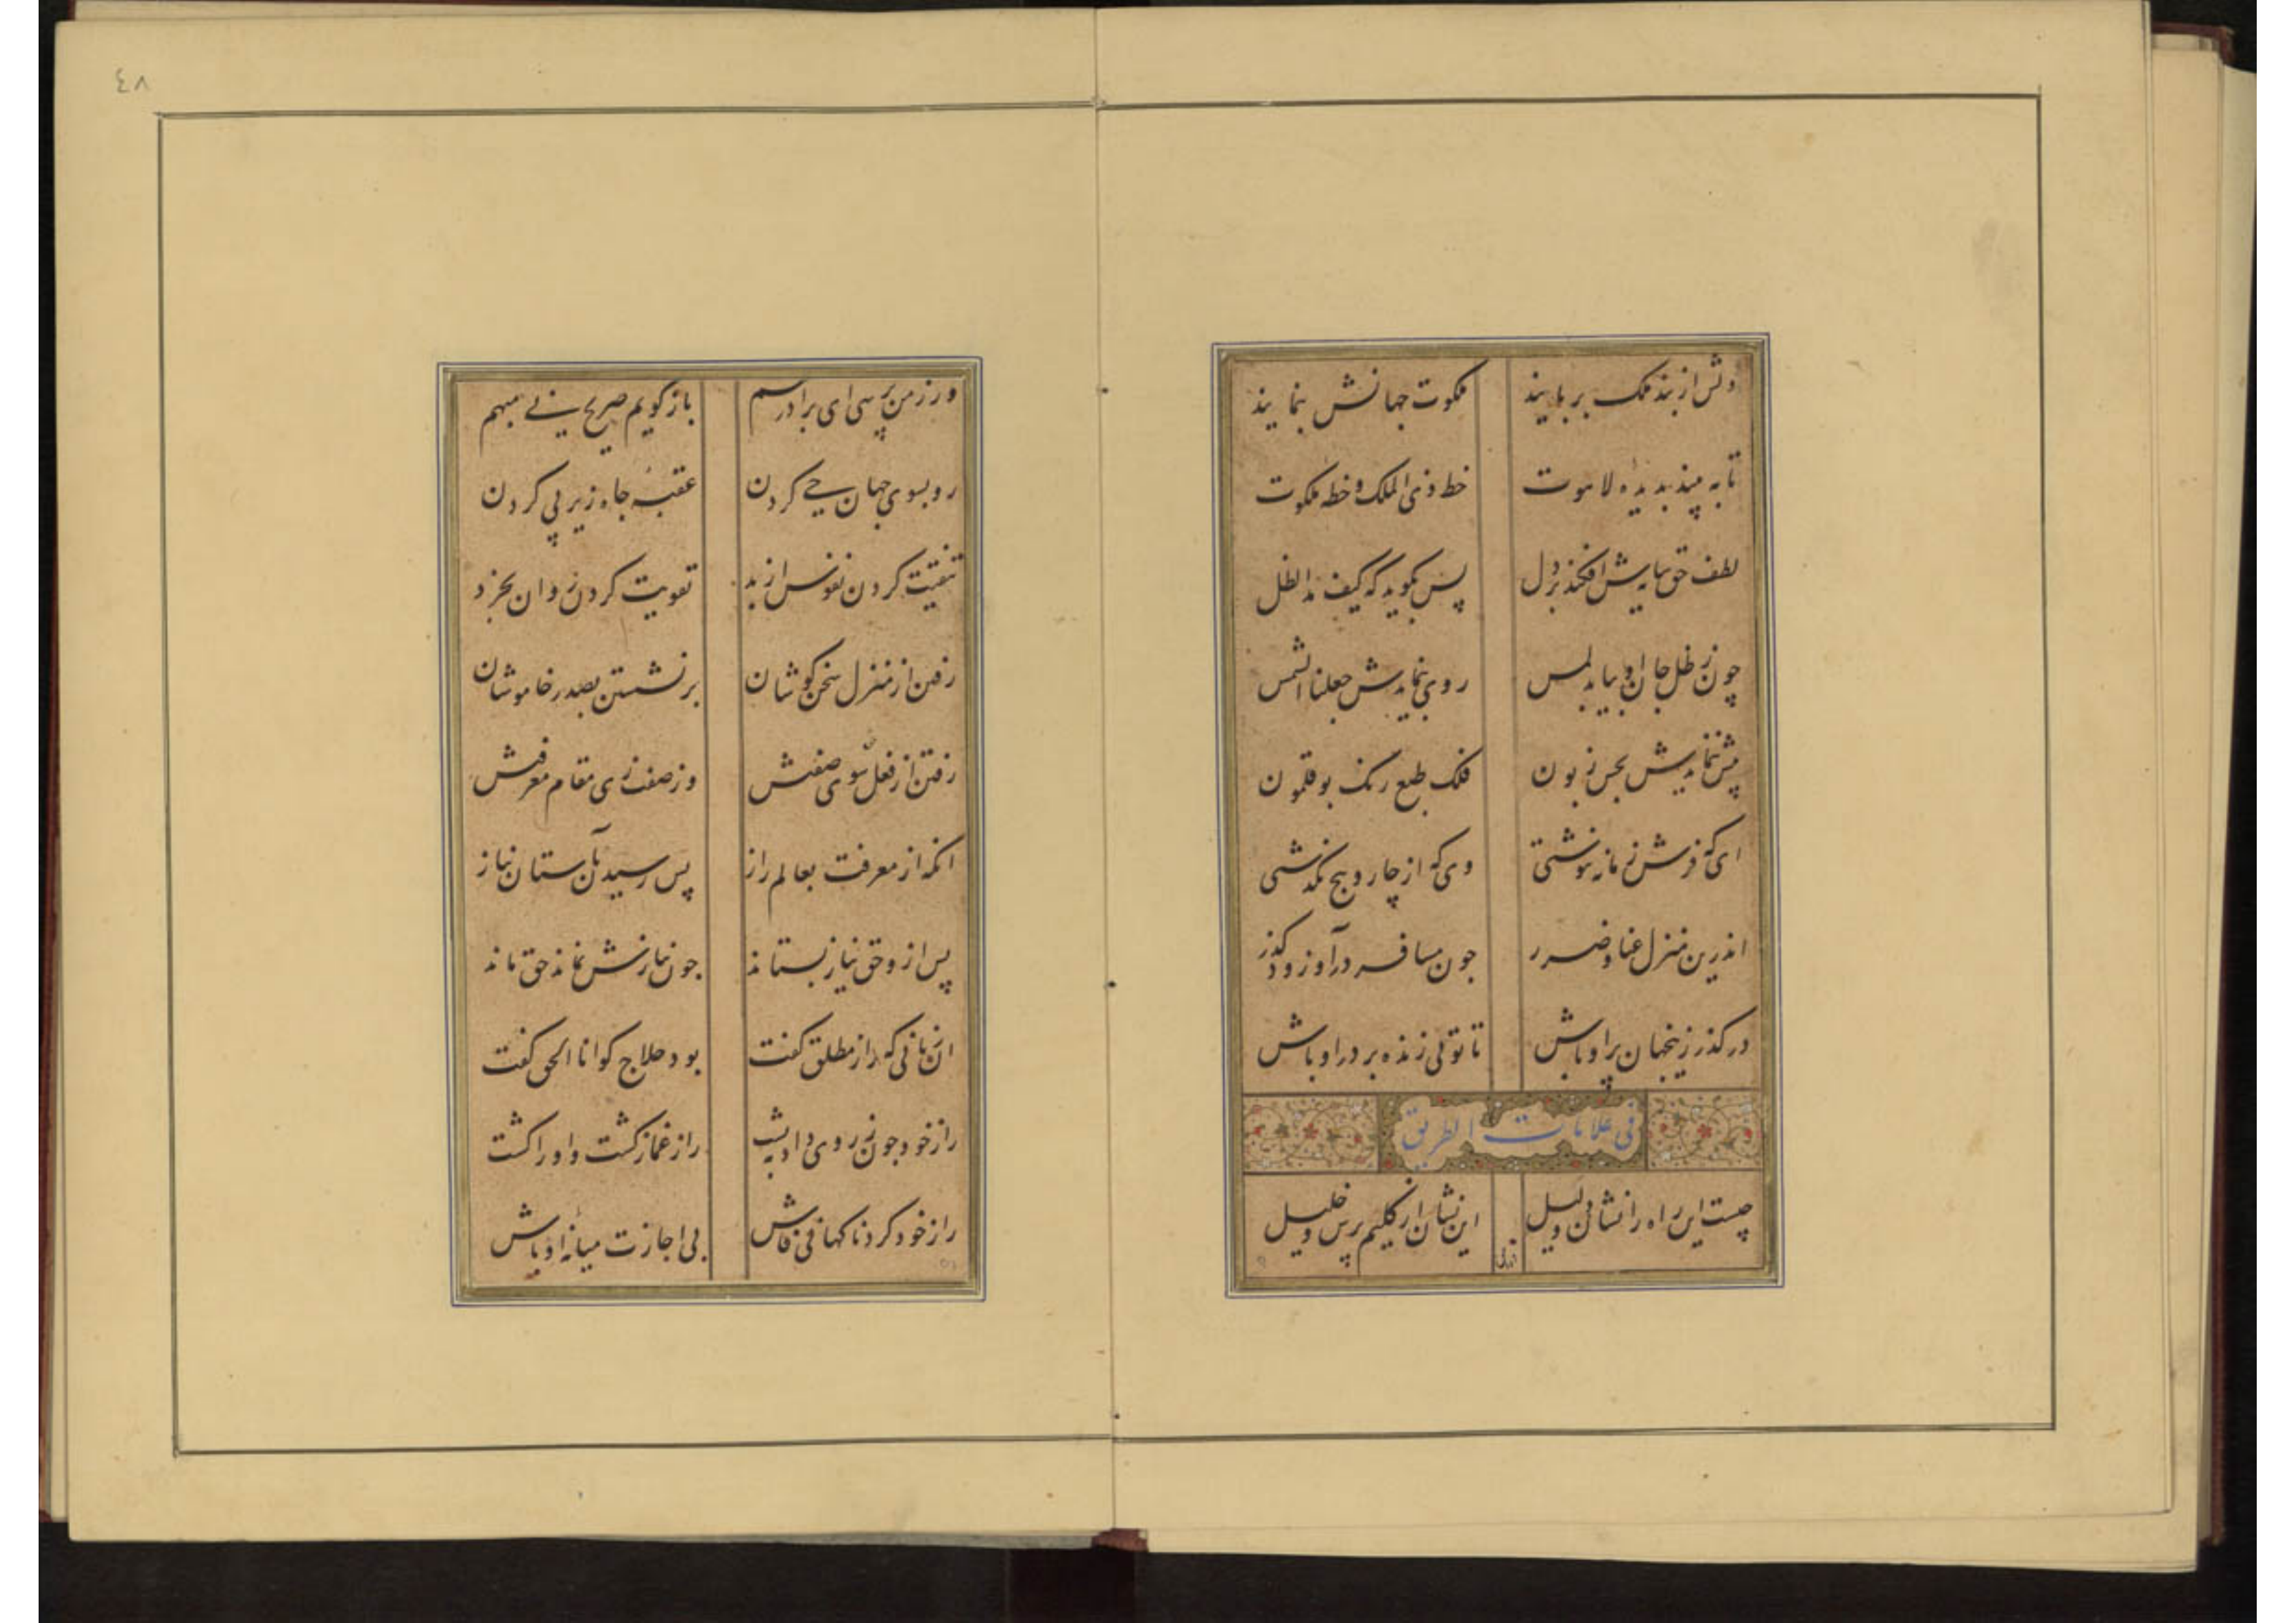 ٤٨
دلش از بند ملک بربایند ملکوت جهانش بنمایند
تا به بیند بدیده لاهوت خط ذی الملک و خطه ملکوت
لطف حق سایه‌ش افکند بر دل پس بگوید که کیف مد الظل
چون ز ظل جان او بیابد لمس روی بنمایدش جعلنا الشمس
پیش ننمایدش بحس زبون فلک طبع رنگ بوقلمون
ای که فرش زمانه ننوشتی وی که از چار و پنج نگذشتی
اندرین منزل عنا و ضرر چون مسافر درآو زود گذر
درگذر زینجهان پر اوباش تا توئی زنده بر در او باش
فی علامات الطریق
چیست این راه را نشان و دلیل این نشان از کلیم پرس و خلیل
ور ز من پرسی ای برادر هم باز گویم صریح نی مبهم
رو بسوی جهان حی کردن عقبه جاه زیر پی کردن
تنقیت کردن نفوس از بد تقویت کردن روان بخرد
رفتن از منزل سخن کوشان بر نشستن بصدر خاموشان
رفتن از فعل سوی صفتش وز صفت زی مقام معرفتش
انگه از معرفت بعالم راز پس رسیدن بآستان نیاز
پس ازو حق نیاز بستاند چون نیازش نماند حق ماند
ان زمانی که راز مطلق گفت بود حلاج کو انا الحق گفت
راز خود چون ز روی داد به پشت راز غماز گشت و او را کشت
راز خود کرد ناگهانی فاش بی اجازت میانه اوباش